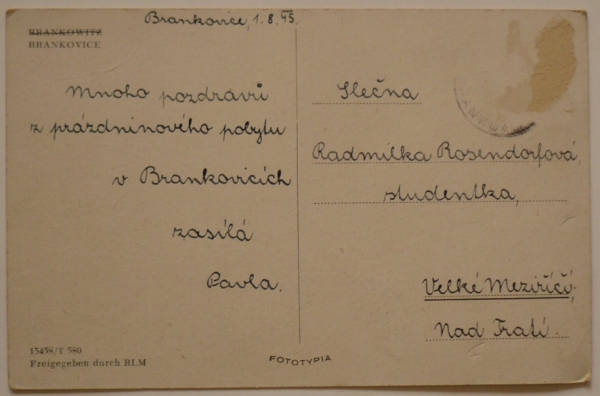 Brankovice, 1. 8. 45.
BRANKOWITZ
BRANKOVICE
Mnoho pozdravů
z prázdninového pobytu
v Brankovicích
zasílá
Pavla.
Slečna
Radmilka Rosendorfová,
studentka,
Velké Meziříčí,
Nad Tratí.
15458/T 580
Freigegeben durch RLM
FOTOTYPIA